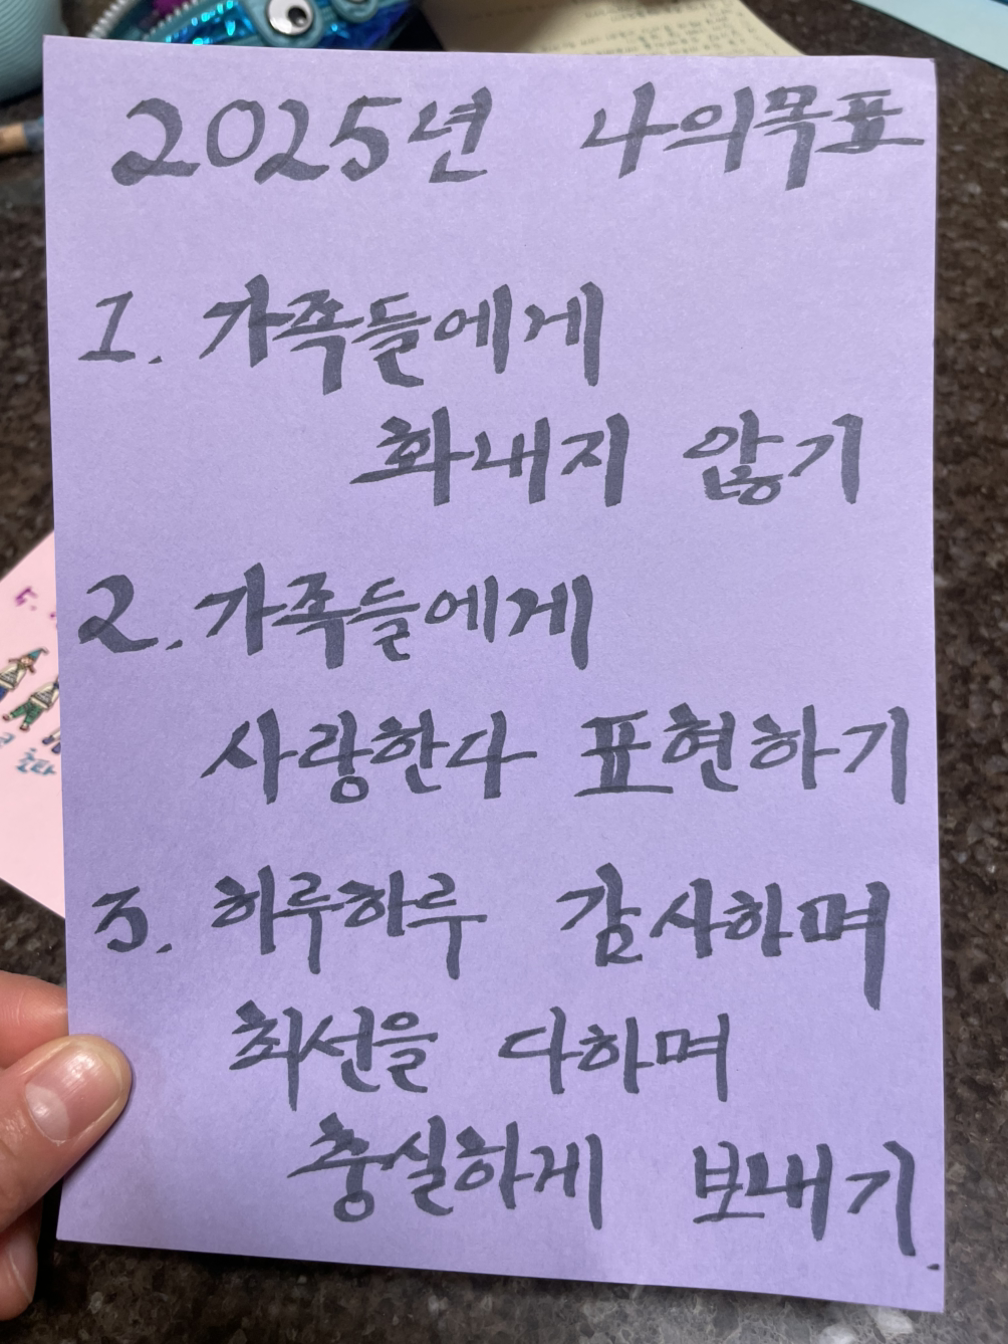 2025년 나의목표
1. 가족들에게
화내지 않기
2. 가족들에게
사랑한다 표현하기
3. 하루하루 감사하며
최선을 다하며
충실하게 보내기.